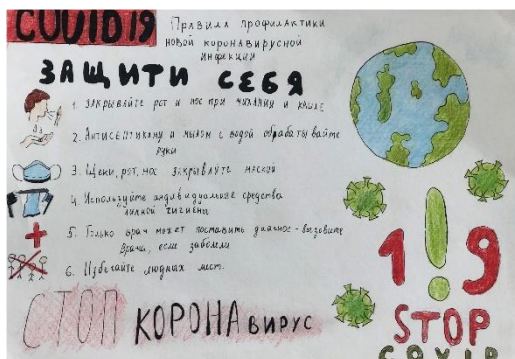 COVID19
Правила профилактики
новой коронавирусной
инфекции
ЗАЩИТИ СЕБЯ
1. Закрывайте рот и нос при чихании и кашле
2. Антисептиками и мылом с водой обрабатывайте
руки
3. Щеки, рот, нос закрывайте маской
4. Используйте индивидуальные средства
личной гигиены
5. Только врач может поставить диагноз - вызовите
врача, если заболели
6. Избегайте людных мест.
СТОП КОРОНАвирус
1 ! 9
STOP
COVID